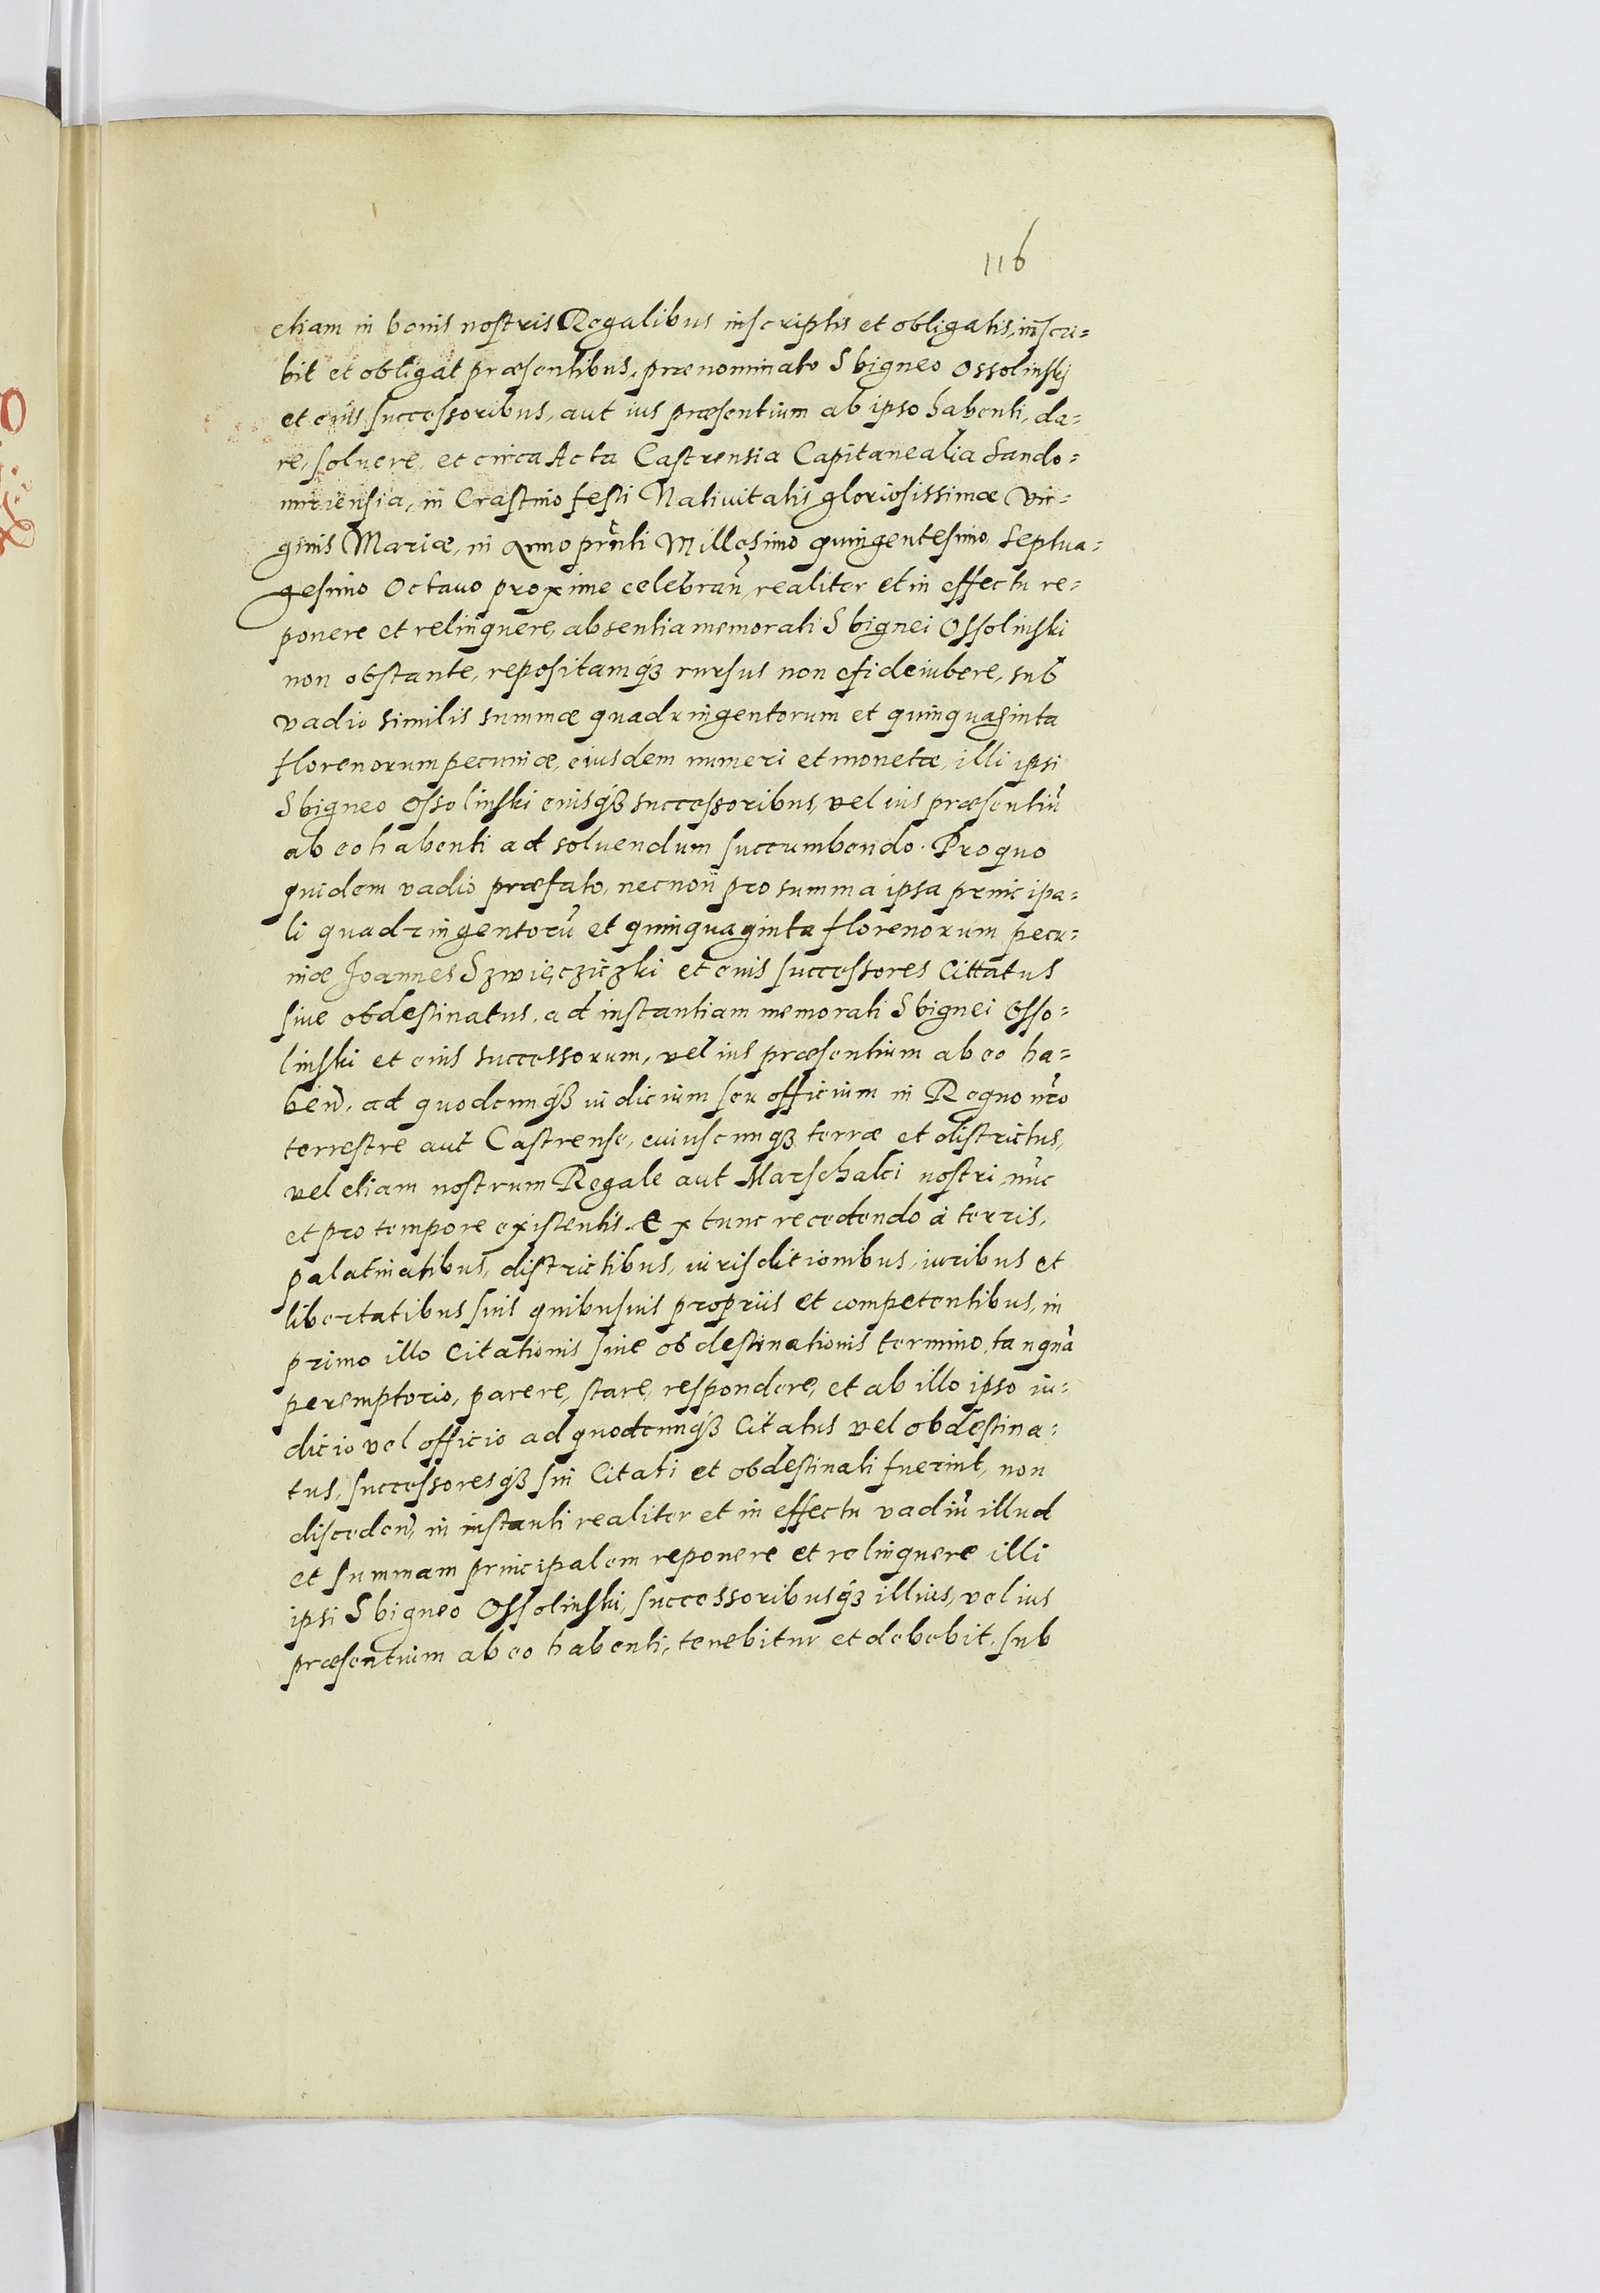 116
etiam in bonis nostris Regalibus inscriptis et obligatis, inscri=
bit et obligat præsentibus, prænominato Sbigneo Ossolinskj
et eius successoribus, aut ius præsentium ab ipso habenti, da=
re, soluere, et circa Acta Castrensia Capitanealia Sando=
miriensia, in Crastino festi Natiuitatis gloriosissimæ Vir=
ginis Mariæ, in Anno pñti Millesimo quingentesimo Septua=
gesimo Octauo proxime celebrañ, realiter et in effectu re=
ponere et relinquere, absentia memorati Sbignei Ossolinski
non obstante, repositamqȝ rursus non efideiubere, sub
vadio similis summæ quadringentorum et quinquaginta
florenorum pecuniæ, eiusdem numeri et monetæ, illi ipsi
Sbigneo Ossolinski eiusqȝ successoribus, vel ius præsentiũ
ab eo habenti ad soluendum succumbendo. Pro quo
quidem vadio præfato, necnon pro summa ipsa principa=
li quadringentorũ et quinquaginta florenorum pecu=
niæ Joannes Szwięcziczki et eius successores Cittatus
siue obdestinatus, ad instantiam memorati Sbignei Osso=
linski et eius successorum, vel ius præsentium ab eo ha=
beñ, ad quodcunqȝ iudicium seu officium in Regno nr̃o
terrestre aut Castrense, cuiuscunqȝ terræ et districtus,
vel etiam nostrum Regale aut Marschalci nostri nũc
et pro tempore existentis. Ex tunc recedendo à terris,
palatinatibus, districtibus, iurisditionibus, iuribus et
libertatibus suis quibusuis proprijs et competentibus, in
primo illo Citationis siue obdestinationis termino, tanquã
peremptorio, parere, stare, respondere, et ab illo ipso iu=
dicio vel officio ad quodcunqȝ Citatus vel obdestina=
tus, successoresqȝ sui Citati et obdestinati fuerint, non
discedeñ, in instanti realiter et in effectu vadiũ illud
et summam principalem reponere et relinquere illi
ipsi Sbigneo Ossolinski, successoribusqȝ illius, vel ius
præsentium ab eo habenti, tenebitur et debebit, sub